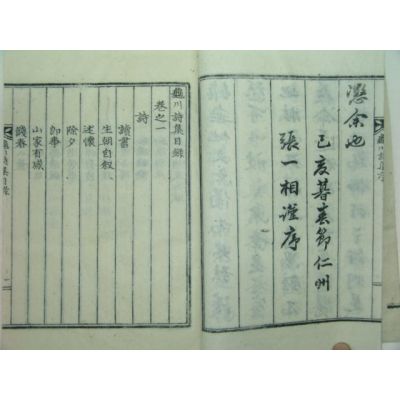 余也
己亥暮春節仁州
張一相謹序
川詩集目錄
卷之一
詩
讀書
生朝自叙
述懷
除夕
卽事
山家有感
餞春
川詩集目錄
一